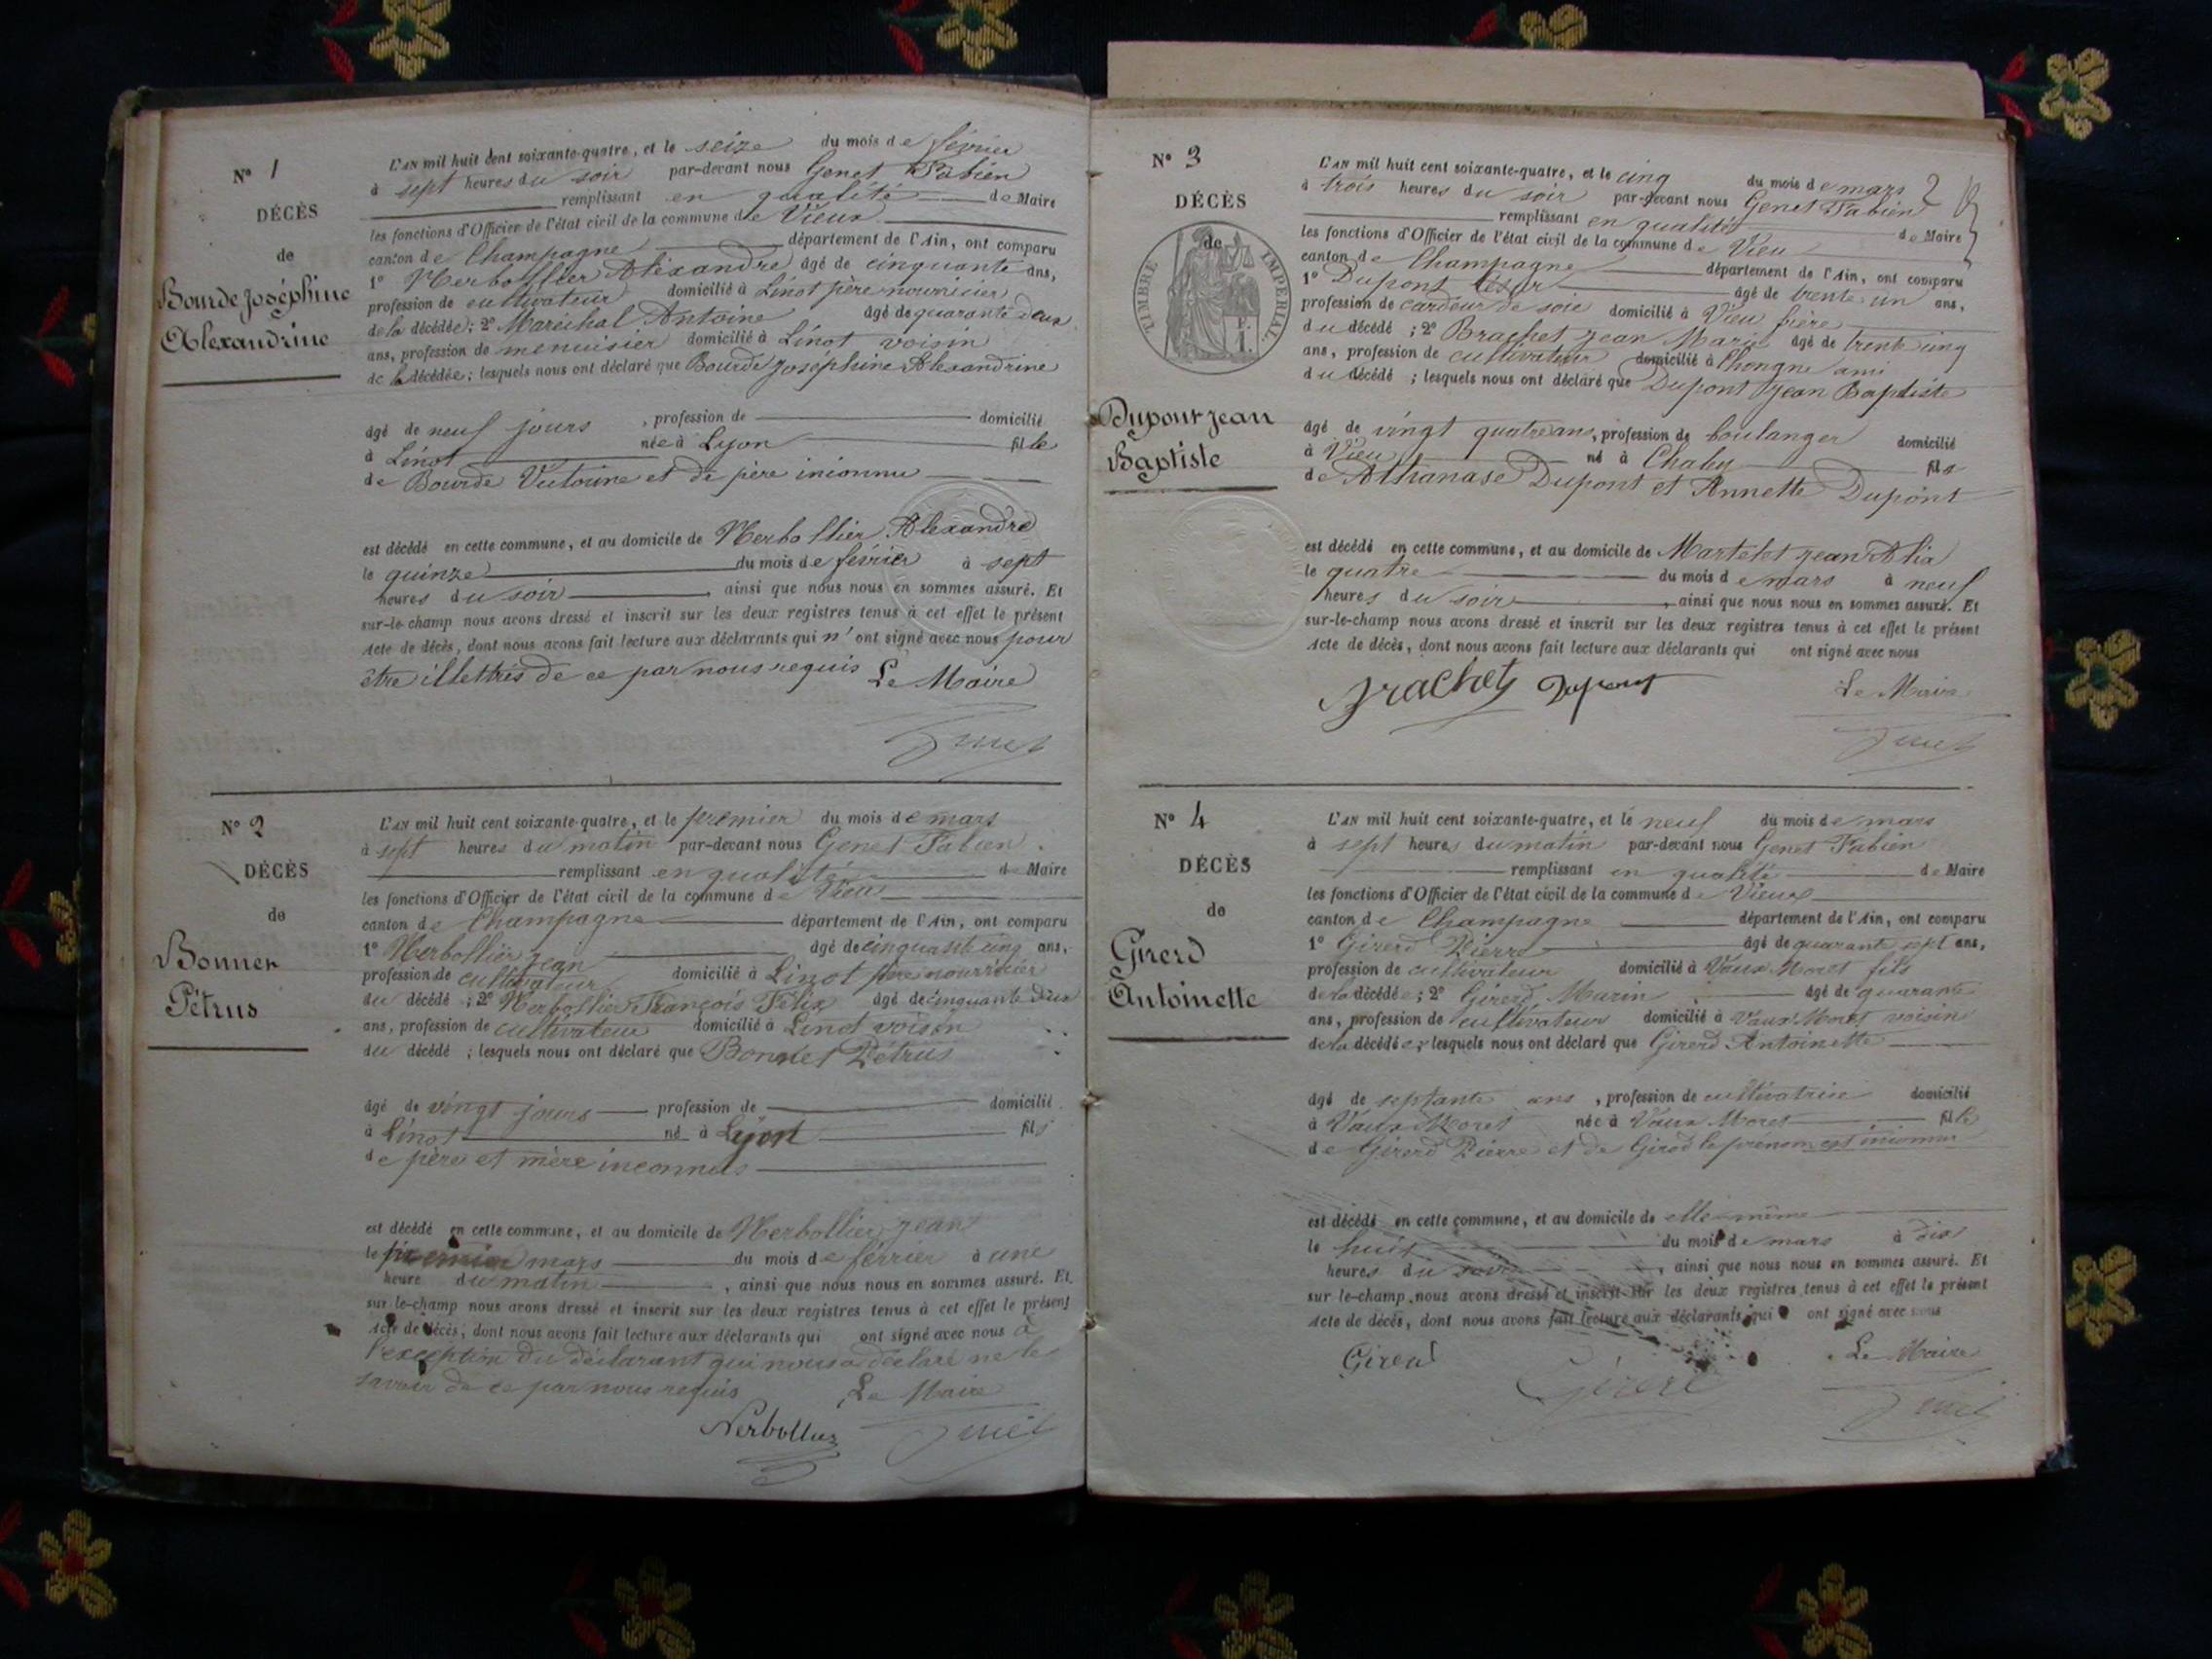 N° 1
DÉCÈS
de
Bourde Joséphine
Alexandrine
L'AN mil huit cent soixante-quatre, et le seize du mois de février
à sept heures du soir par-devant nous Genet Fabien
remplissant en qualité de Maire
les fonctions d'Officier de l'état civil de la commune de Vieux
canton de Champagne département de l'Ain, ont comparu
1° Nerbollier Alexandre âgé de cinquante ans,
profession de cultivateur domicilié à Linot père nourricier
de la décédée; 2° Maréchal Antoine âgé de quarante deux
ans, profession de menuisier domicilié à Linot voisin
de la décédée; lesquels nous ont déclaré que Bourde Joséphine Alexandrine
âgé de neuf jours, profession de domicilié
à Linot née à Lyon fille
de Bourde Victorine et de père inconnu
est décédé en cette commune, et au domicile de Nerbollier Alexandre
le quinze du mois de février à sept
heures du soir, ainsi que nous nous en sommes assuré. Et
sur-le-champ nous avons dressé et inscrit sur les deux registres tenus à cet effet le présent
Acte de décès, dont nous avons fait lecture aux déclarants qui n'ont signé avec nous pour
être illettrés de ce par nous requis Le Maire
Genet
N° 2
DÉCÈS
de
Bonnet
Pétrus
L'AN mil huit cent soixante-quatre, et le premier du mois de mars
à sept heures du matin par-devant nous Genet Fabien
remplissant en qualité de Maire
les fonctions d'Officier de l'état civil de la commune de Vieu
canton de Champagne département de l'Ain, ont comparu
1° Nerbollier jean âgé de cinquante cinq ans,
profession de cultivateur domicilié à Linot père nourricier
du décédé; 2° Nerbollier François Félix âgé de cinquante deux
ans, profession de cultivateur domicilié à Linot voisin
du décédé; lesquels nous ont déclaré que Bonnet Pétrus
âgé de vingt jours profession de domicilié
à Linot né à Lyon fils
de père et mère inconnus
est décédé en cette commune, et au domicile de Nerbollier jean
le premier mars du mois de février à une
heure du matin, ainsi que nous nous en sommes assuré. Et
sur-le-champ nous avons dressé et inscrit sur les deux registres tenus à cet effet le présent
Acte de décès, dont nous avons fait lecture aux déclarants qui ont signé avec nous à
l'exception du déclarant qui nous a déclaré ne le
savoir de ce par nous requis Le Maire
Nerbollier Genet
N° 3
DÉCÈS
de
TIMBRE IMPERIAL
Dupont jean
Baptiste
2
L'AN mil huit cent soixante-quatre, et le cinq du mois de mars
à trois heures du soir par-devant nous Genet Fabien
remplissant en qualité de Maire
les fonctions d'Officier de l'état civil de la commune de Vieu
canton de Champagne département de l'Ain, ont comparu
1° Dupont César âgé de trente un ans,
profession de cardeur de soie domicilié à Vieu frère
du décédé; 2° Brachet jean Marie âgé de trente cinq
ans, profession de cultivateur domicilié à Chongne ami
du décédé; lesquels nous ont déclaré que Dupont jean Baptiste
âgé de vingt quatre ans, profession de boulanger domicilié
à Vieu né à Chaley fils
de Athanase Dupont et Annette Dupont
est décédé en cette commune, et au domicile de Martelet jean
le quatre du mois de mars à neuf
heures du soir, ainsi que nous nous en sommes assuré. Et
sur-le-champ nous avons dressé et inscrit sur les deux registres tenus à cet effet le présent
Acte de décès, dont nous avons fait lecture aux déclarants qui ont signé avec nous
Brachet Dupont Le Maire
Genet
N° 4
DÉCÈS
de
Girerd
Antoinette
L'AN mil huit cent soixante-quatre, et le neuf du mois de mars
à sept heures du matin par-devant nous Genet Fabien
remplissant en qualité de Maire
les fonctions d'Officier de l'état civil de la commune de Vieux
canton de Champagne département de l'Ain, ont comparu
1° Girerd Pierre âgé de quarante sept ans,
profession de cultivateur domicilié à Vaux Moret fils
de la décédée; 2° Girerd Marin âgé de quarante
ans, profession de cultivateur domicilié à Vaux Moret voisin
de la décédée; lesquels nous ont déclaré que Girerd Antoinette
âgé de septante ans, profession de cultivatrice domicilié
à Vaux Moret née à Vaux Moret fille
de Girerd Pierre et de Girod le prénom est inconnu
est décédé en cette commune, et au domicile de elle-même
le huit du mois de mars à dix
heures du soir, ainsi que nous nous en sommes assuré. Et
sur-le-champ nous avons dressé et inscrit sur les deux registres tenus à cet effet le présent
Acte de décès, dont nous avons fait lecture aux déclarants qui ont signé avec nous
Girerd Girerd Le Maire
Genet